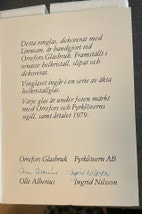 Detta vinglas, dekorerat med
Linnean, är handgjort vid
Orrefors Glasbruk. Framställt i
renaste helkristall, slipat och
dekorerat.
Vinglaset ingår i en serie av äkta
helkristallglas.
Varje glas är under foten märkt
med Orrefors och Fyrklöverns
sigill, samt årtalet 1979.
Orrefors Glasbruk Fyrklövern AB
Olle Alberius Ingrid Nilsson
Olle Alberius Ingrid Nilsson